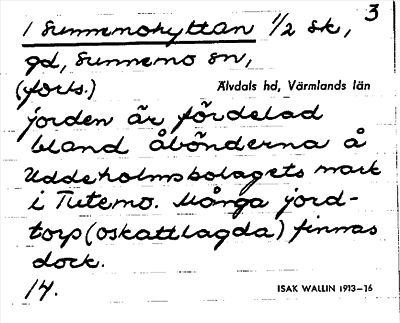 3
1 Sunnemohyttan 1/2 sk,
gd, Sunnemo sn,
(forts.) Älvdals hd, Värmlands län
jorden är fördelad
bland åbönderna å
Uddeholmsbolagets mark
i Tutemo. Många jord-
torp (oskattlagda) finnas
dock.
14. ISAK WALLIN 1913–16